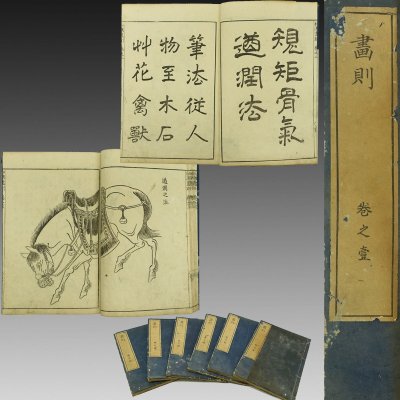 規矩骨氣
遒潤法
筆法從人
物至木石
艸花禽獸
畫則
卷之壹
遒潤之法